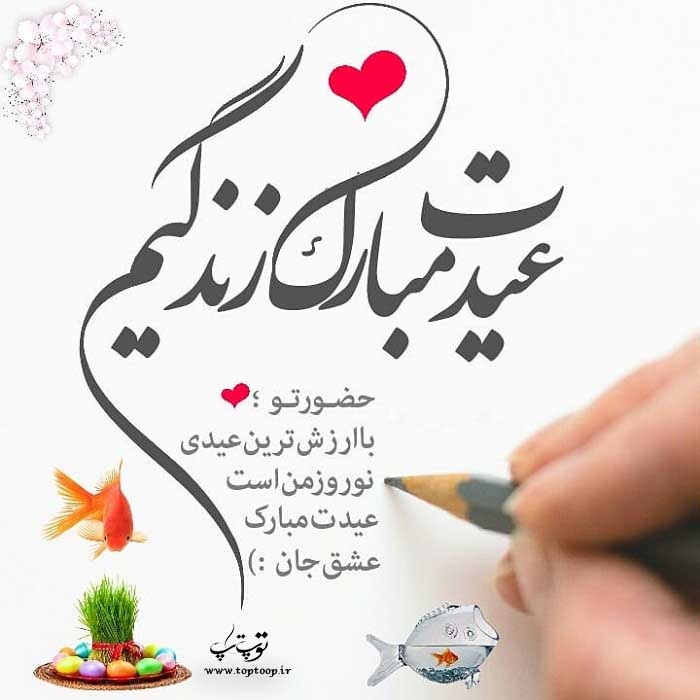 عیدت مبارک زندگیم
حضور تو ؛
با ارزش ترین عیدی
نوروز من است
عیدت مبارک
عشق جان :)
توپ تاپ
www.toptoop.ir